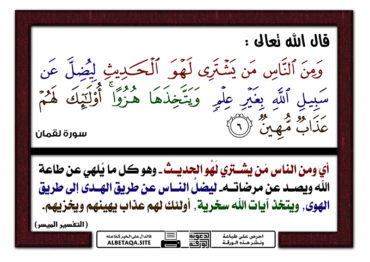 قال الله تعالى :
وَمِنَ ٱلنَّاسِ مَن يَشْتَرِى لَهْوَ ٱلْحَدِيثِ لِيُضِلَّ عَن
سَبِيلِ ٱللَّهِ بِغَيْرِ عِلْمٍ وَيَتَّخِذَهَا هُزُوًا ۚ أُو۟لَـٰٓئِكَ لَهُمْ
عَذَابٌ مُّهِينٌ ٦
سورة لقمان
أي ومن الناس مَن يشتري لَهْو الحديث ـ وهو كل ما يُلهي عن طاعة
الله ويصد عن مرضاته ـ ليضلَّ الناس عن طريق الهدى إلى طريق
الهوى، ويتخذ آيات الله سخرية، أولئك لهم عذاب يهينهم ويخزيهم.
(التفسير الميسر)
احرص على طباعة
ونشر هذه الورقة
قالدال على الخير كفاعله
ALBETAQA.SITE